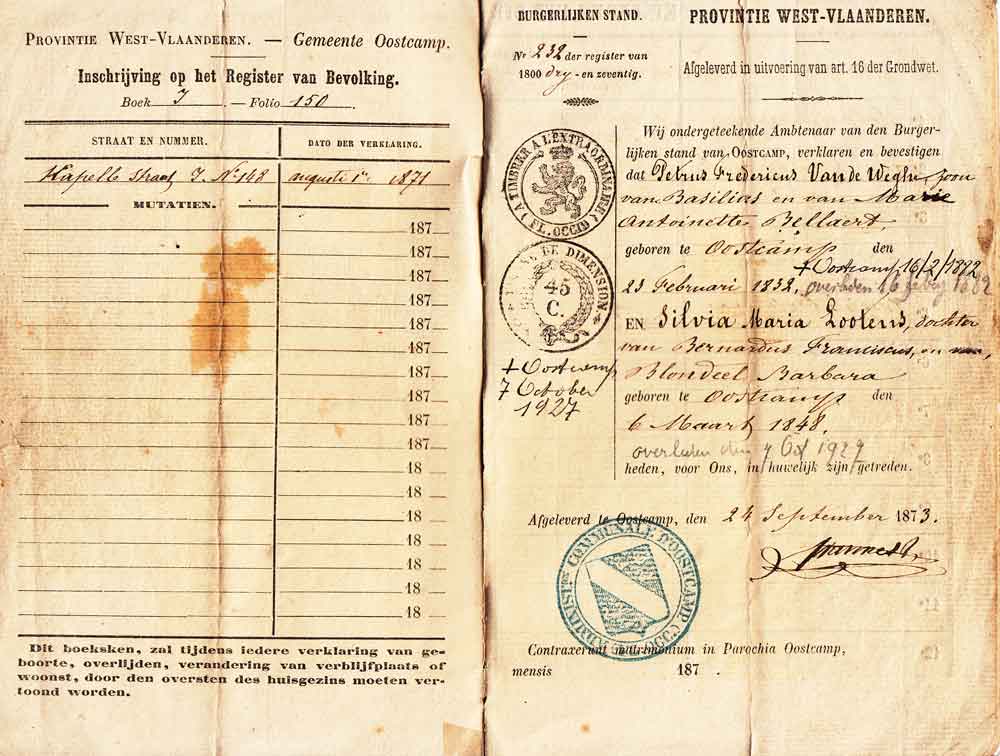 PROVINTIE WEST-VLAANDEREN. — Gemeente Oostcamp.
Inschrijving op het Register van Bevolking.
Boek I. — Folio 150.
STRAAT EN NUMMER.
DATO DER VERKLARING.
Kapelle Straat I. N° 148
augusti 1n 1871
MUTATIEN.
187
187
187
187
187
187
187
187
187
187
18
18
18
18
18
18
18
Dit boeksken, zal tijdens iedere verklaring van ge-
boorte, overlijden, verandering van verblijfplaats of
woonst, door den oversten des huisgezins moeten ver-
toond worden.
BURGERLIJKEN STAND.
Nr 232 der register van
1800 dry - en zeventig.
PROVINTIE WEST-VLAANDEREN.
Afgeleverd in uitvoering van art. 16 der Grondwet.
A TIMBRER A L'EXTRAORDINAIRE
(FL. OCCID)
DE DIMENSION
45
C.
+ Oostcamp
7 October
1927
Wij ondergeteekende Ambtenaar van den Burger-
lijken stand van OOSTCAMP, verklaren en bevestigen
dat Petrus Fredericus Van de Weghe, zoon
van Basilius en van Marie
Antoinette Bellaert,
geboren te Oostcamp den
+ Oostcamp 16/2/1892
23 Februari 1832, overleden 16
EN Silvia Maria Lootens, dochter
van Bernardus Franciscus, en van,
Blondeel Barbara
geboren te Oostcamp den
6 Maart 1848.
overleden den 7 Oct 1927
heden, voor Ons, in huwelijk zijn getreden.
Afgeleverd te Oostcamp, den 24 September 1873.
ADMINISTon COMMUNALE D'OOSTCAMP (FL. OCC.)
Contraxerunt matrimonium in Parochia Oostcamp,
mensis 187 .